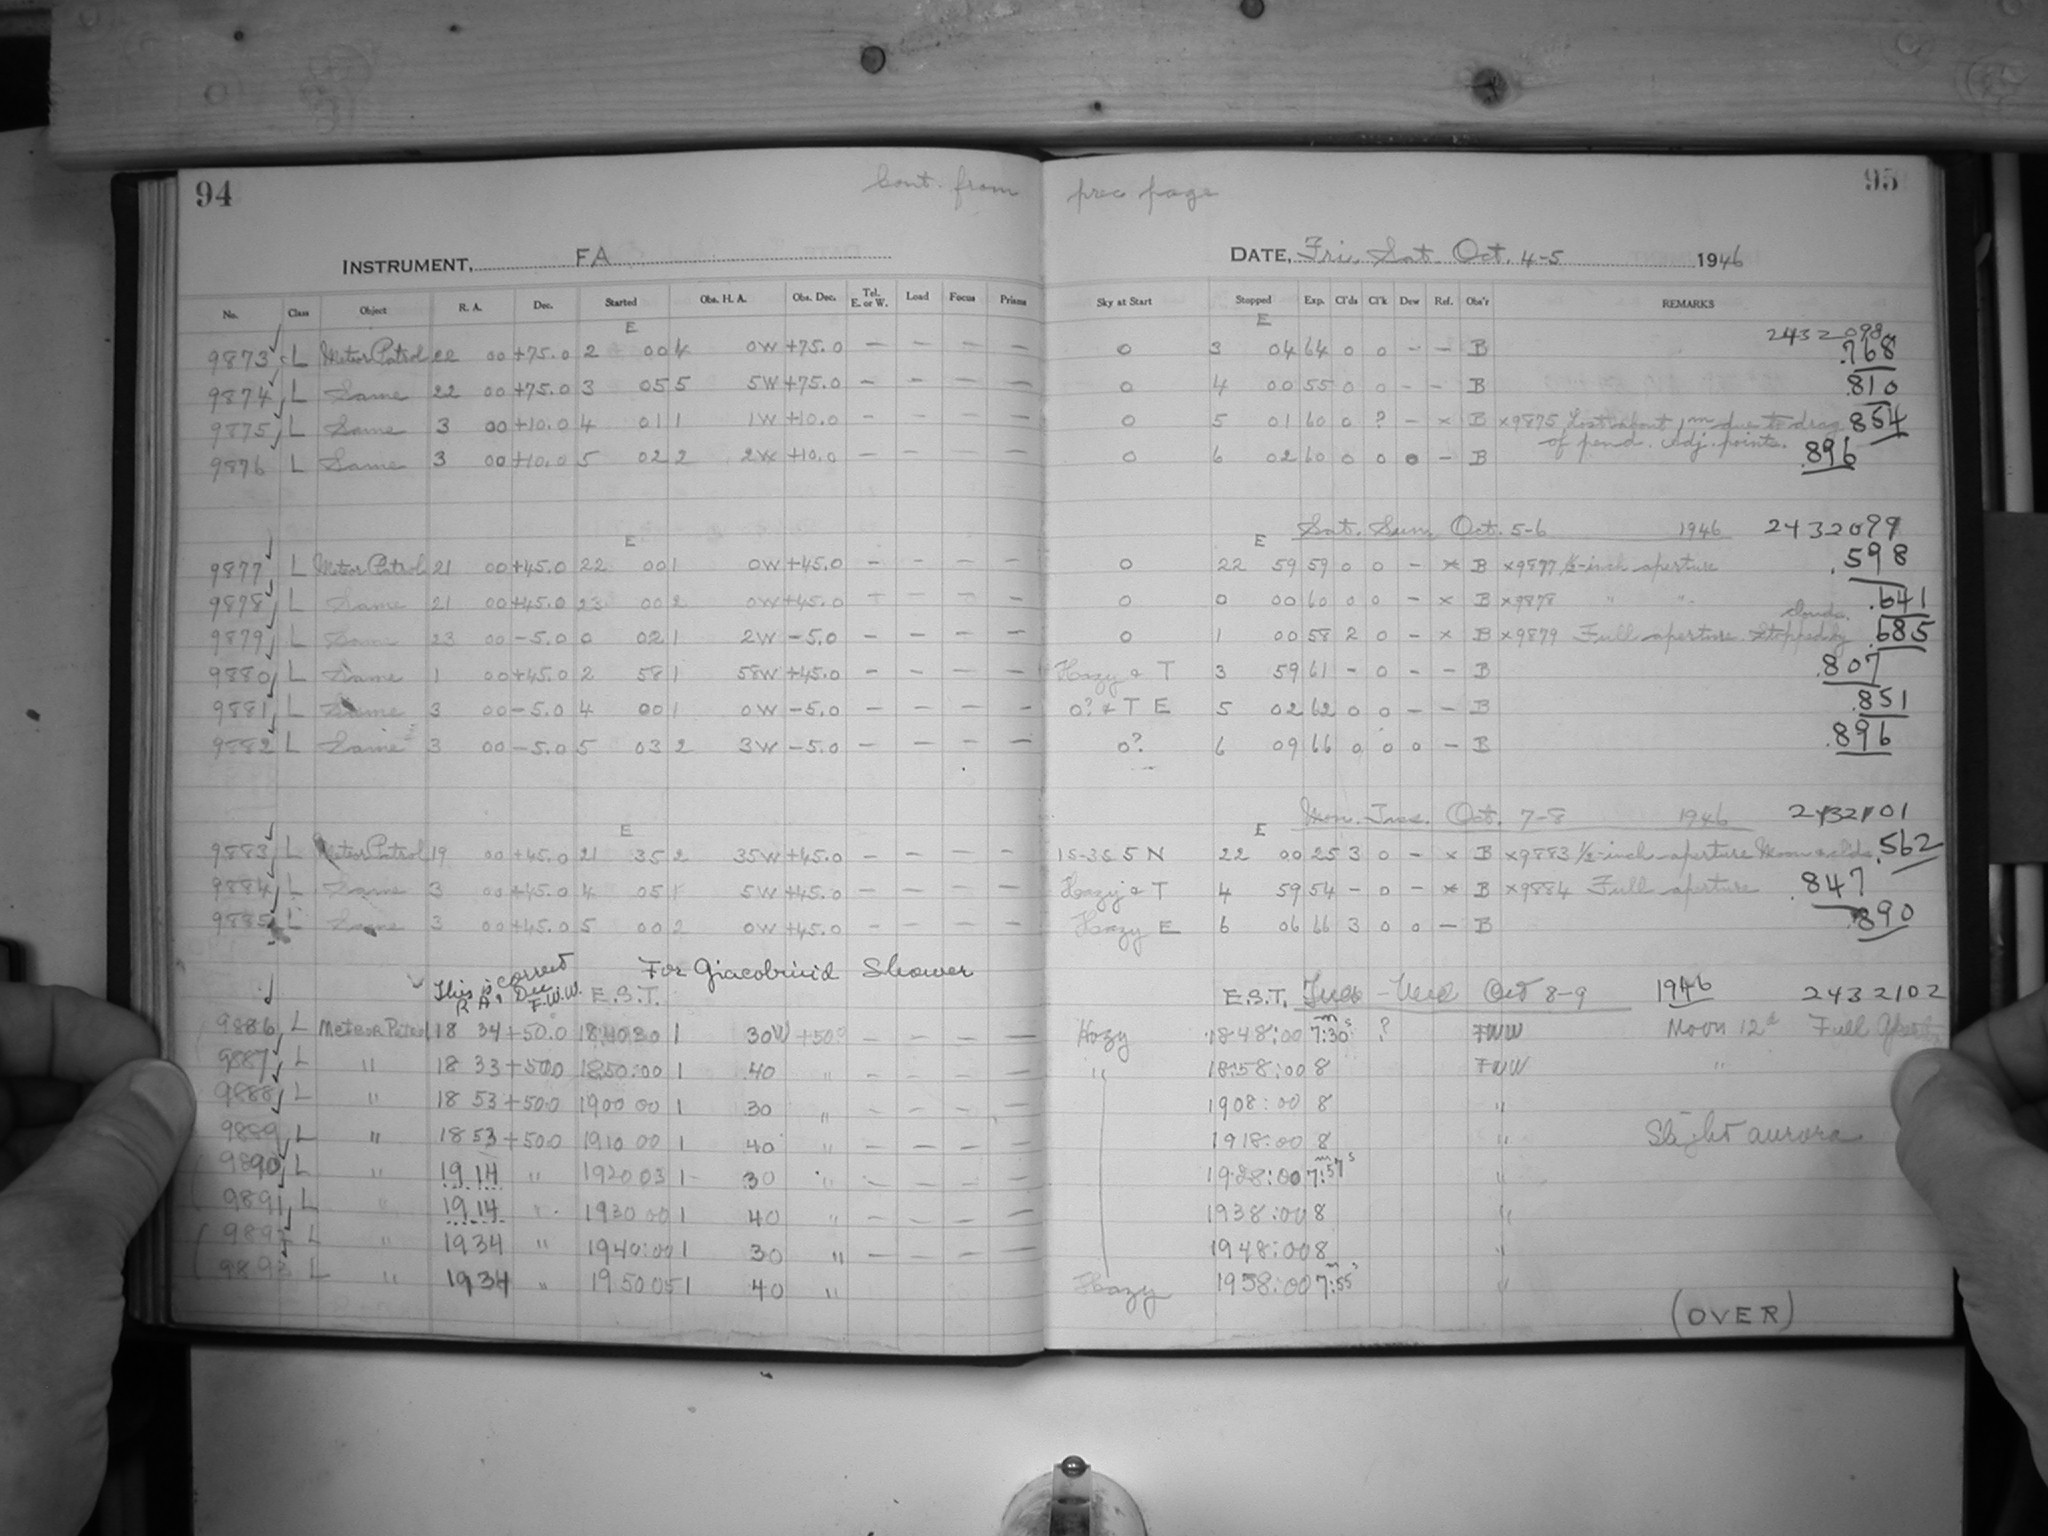 94 Cont. from prec page 95
INSTRUMENT, FA DATE, Fri. Sat. Oct. 4-5 1946
No. Class Object R. A. Dec. Started Obs. H. A. Obs. Dec. Tel. E. or W. Load Focus Prisms Sky at Start Stopped Exp. Cl'ds Cl'k Dew Ref. Obs'r REMARKS
E E 2432098
9873 L Meteor Patrol 22 00 +75.0 2 00 4 0W +75.0 — — — — 0 3 04 64 0 0 — — B .768
9874 L Same 22 00 +75.0 3 05 5 5W +75.0 — — — — 0 4 00 55 0 0 — — B .810
9875 L Same 3 00 +10.0 4 01 1 1W +10.0 — — — — 0 5 01 60 0 ? — x B x9875 Lost about 1m due to drag 854
of pend. adj. points.
9876 L Same 3 00 +10.0 5 02 2 2W +10.0 — — — — 0 6 02 60 0 0 — B .896
Sat. Sun. Oct. 5-6 1946 2432099
E E
9877 L Meteor Patrol 21 00 +45.0 22 00 1 0W +45.0 — — — — 0 22 59 59 0 0 — x B x9877 ½-inch aperture .598
9878 L Same 21 00 +45.0 23 00 2 0W +45.0 — — — — 0 0 00 60 0 0 — x B x9878 " " .641
clouds.
9879 L Same 23 00 -5.0 0 02 1 2W -5.0 — — — — 0 1 00 58 2 0 — x B x9879 Full aperture. Stopped by .685
9880 L Same 1 00 +45.0 2 58 1 58W +45.0 — — — — Hazy & T 3 59 61 — 0 — — B .807
9881 L Same 3 00 -5.0 4 00 1 0W -5.0 — — — — 0? & T E 5 02 62 0 0 — — B .851
9882 L Same 3 00 -5.0 5 03 2 3W -5.0 — — — — 0? 6 09 66 0 0 0 — B .896
Mon. Tues. Oct. 7-8 1946 2432101
E E
9883 L Meteor Patrol 19 00 +45.0 21 35 2 35W +45.0 — — — — 15-35 5 N 22 00 25 3 0 — x B x9883 ½-inch aperture Moon & clds. .562
9884 L Same 3 00 +45.0 4 05 1 5W +45.0 — — — — Hazy & T 4 59 54 — 0 — x B x9884 Full aperture .847
9885 L Same 3 00 +45.0 5 00 2 0W +45.0 — — — — Hazy E 6 06 66 3 0 0 — B .890
This is correct For Giacobinid Shower
R A & Dec F.W.W. E.S.T. E.S.T. Tues - Wed Oct 8-9 1946 2432102
9886 L Meteor Patrol 18 34 +50.0 18 40 30 1 30W +50.0 — — — — Hazy 18 48:00 7m:30s ? FWW Moon 12d Full
9887 L " 18 33 +50.0 18 50:00 1 40 " — — — — " 18 58:00 8 FWW "
9888 L " 18 53 +50.0 19 00 00 1 30 " — — — — 19 08:00 8 "
9889 L " 18 53 +50.0 19 10 00 1 40 " — — — — 19 18:00 8 " Slight aurora
9890 L " 19 14 " 19 20 03 1 30 " — — — — 19 28:00 7m:57s "
9891 L " 19 14 " 19 30 00 1 40 " — — — — 19 38:00 8 "
9892 L " 19 34 " 19 40:00 1 30 " — — — — 19 48:00 8 "
9893 L " 19 34 " 19 50 05 1 40 " Hazy 19 58:00 7m:55s "
(OVER)